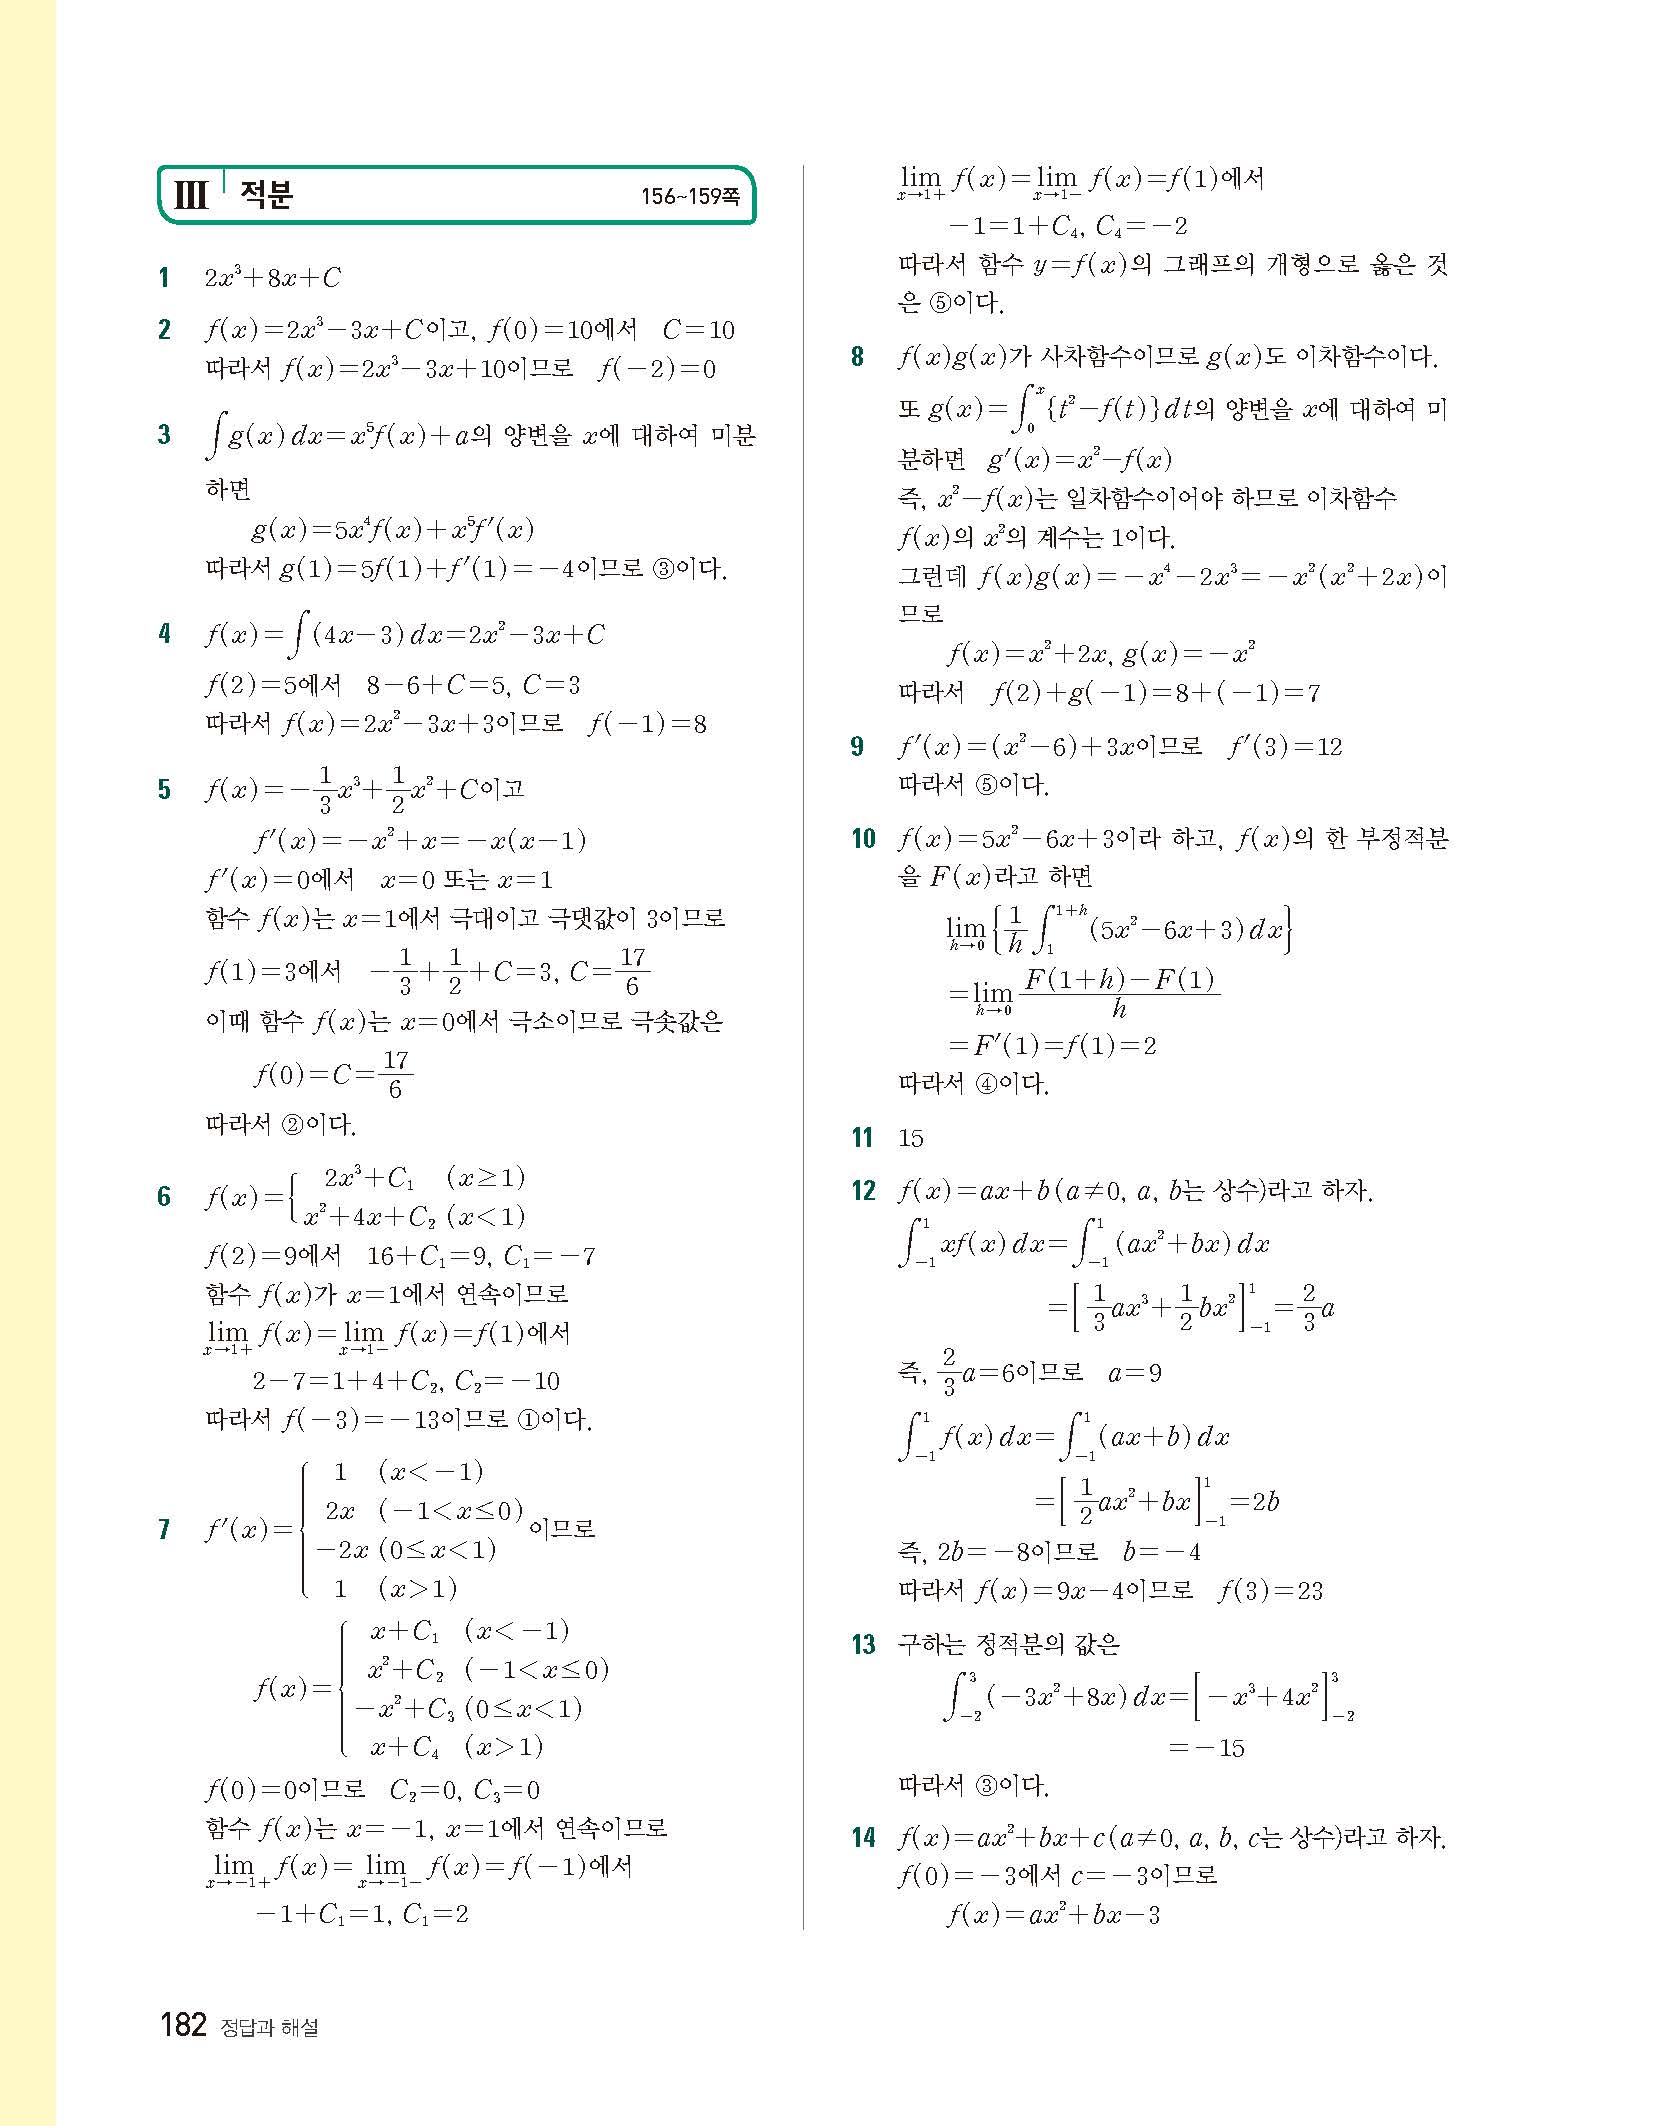 Ⅲ 적분 156~159쪽
1 2x³+8x+C
2 f(x)=2x³-3x+C이고, f(0)=10에서 C=10
따라서 f(x)=2x³-3x+10이므로 f(-2)=0
3 ∫g(x)dx=x⁵f(x)+a의 양변을 x에 대하여 미분
하면
g(x)=5x⁴f(x)+x⁵f′(x)
따라서 g(1)=5f(1)+f′(1)=-4이므로 ③이다.
4 f(x)=∫(4x-3)dx=2x²-3x+C
f(2)=5에서 8-6+C=5, C=3
따라서 f(x)=2x²-3x+3이므로 f(-1)=8
5 f(x)=-1/3x³+1/2x²+C이고
f′(x)=-x²+x=-x(x-1)
f′(x)=0에서 x=0 또는 x=1
함수 f(x)는 x=1에서 극대이고 극댓값이 3이므로
f(1)=3에서 -1/3+1/2+C=3, C=17/6
이때 함수 f(x)는 x=0에서 극소이므로 극솟값은
f(0)=C=17/6
따라서 ②이다.
6 f(x)={ 2x³+C₁ (x≥1)
x²+4x+C₂ (x<1)
f(2)=9에서 16+C₁=9, C₁=-7
함수 f(x)가 x=1에서 연속이므로
lim_{x→1+} f(x)=lim_{x→1-} f(x)=f(1)에서
2-7=1+4+C₂, C₂=-10
따라서 f(-3)=-13이므로 ①이다.
7 f′(x)={ 1 (x<-1)
2x (-1<x≤0)
-2x (0≤x<1)
1 (x>1) 이므로
f(x)={ x+C₁ (x<-1)
x²+C₂ (-1<x≤0)
-x²+C₃ (0≤x<1)
x+C₄ (x>1)
f(0)=0이므로 C₂=0, C₃=0
함수 f(x)는 x=-1, x=1에서 연속이므로
lim_{x→-1+} f(x)=lim_{x→-1-} f(x)=f(-1)에서
-1+C₁=1, C₁=2
lim_{x→1+} f(x)=lim_{x→1-} f(x)=f(1)에서
-1=1+C₄, C₄=-2
따라서 함수 y=f(x)의 그래프의 개형으로 옳은 것
은 ⑤이다.
8 f(x)g(x)가 사차함수이므로 g(x)도 이차함수이다.
또 g(x)=∫₀ˣ{t²-f(t)}dt의 양변을 x에 대하여 미
분하면 g′(x)=x²-f(x)
즉, x²-f(x)는 일차함수이어야 하므로 이차함수
f(x)의 x²의 계수는 1이다.
그런데 f(x)g(x)=-x⁴-2x³=-x²(x²+2x)이
므로
f(x)=x²+2x, g(x)=-x²
따라서 f(2)+g(-1)=8+(-1)=7
9 f′(x)=(x²-6)+3x이므로 f′(3)=12
따라서 ⑤이다.
10 f(x)=5x²-6x+3이라 하고, f(x)의 한 부정적분
을 F(x)라고 하면
lim_{h→0}{1/h ∫₁^{1+h}(5x²-6x+3)dx}
=lim_{h→0} (F(1+h)-F(1))/h
=F′(1)=f(1)=2
따라서 ④이다.
11 15
12 f(x)=ax+b(a≠0, a, b는 상수)라고 하자.
∫₋₁¹ xf(x)dx=∫₋₁¹(ax²+bx)dx
=[1/3ax³+1/2bx²]₋₁¹=2/3a
즉, 2/3a=6이므로 a=9
∫₋₁¹ f(x)dx=∫₋₁¹(ax+b)dx
=[1/2ax²+bx]₋₁¹=2b
즉, 2b=-8이므로 b=-4
따라서 f(x)=9x-4이므로 f(3)=23
13 구하는 정적분의 값은
∫₋₂³(-3x²+8x)dx=[-x³+4x²]₋₂³
=-15
따라서 ③이다.
14 f(x)=ax²+bx+c(a≠0, a, b, c는 상수)라고 하자.
f(0)=-3에서 c=-3이므로
f(x)=ax²+bx-3
182 정답과 해설